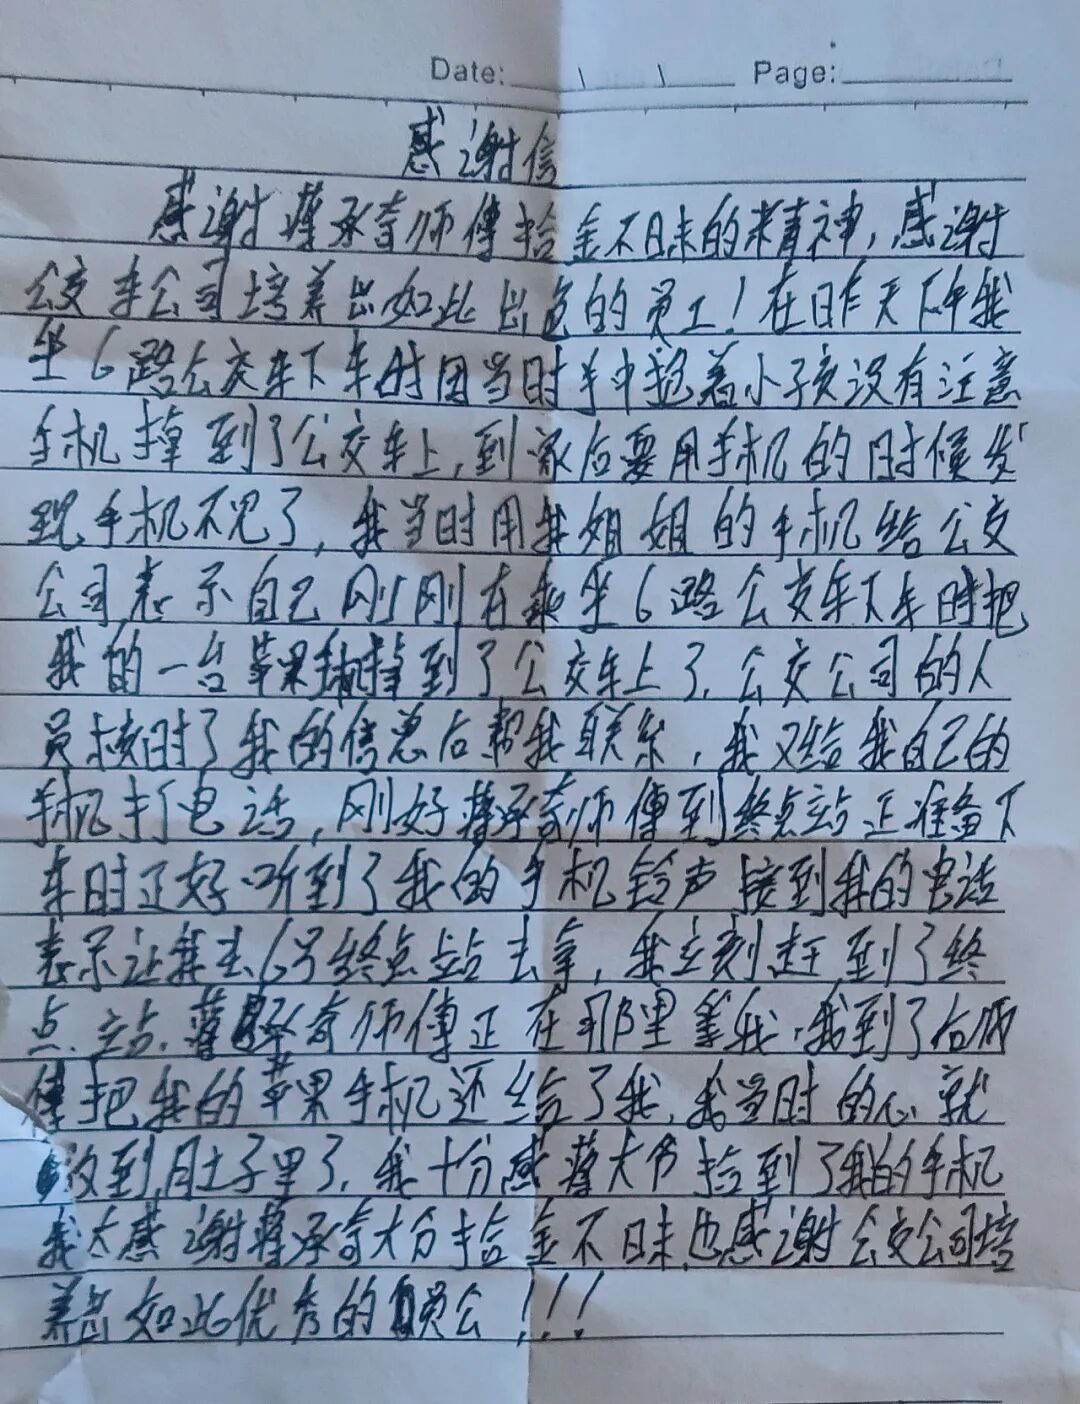 Date: \ \ Page:
感谢信
感谢蒋承奇师傅拾金不昧的精神，感谢
公交车公司培养出如此出色的员工！在昨天下午我
坐6路公交车下车时因当时手中抱着小孩没有注意
手机掉到了公交车上，到家后要用手机的时候发
现手机不见了，我当时用我姐姐的手机给公交
公司表示自己刚刚在乘坐6路公交车下车时把
我的一台苹果手机掉到了公交车上了，公交公司的人
员核时了我的信息后帮我联系，我又给我自己的
手机打电话，刚好蒋承奇师傅到终点站正准备下
车时正好听到了我的手机铃声接到我的电话
表示让我去6号终点站去拿，我立刻赶到了终
点站，蒋承奇师傅正在那里等我，我到了后师
傅把我的苹果手机还给了我，我当时的心就
放到肚子里了，我十分感蒋大爷捡到了我的手机
我大感谢蒋承奇大分拾金不昧，也感谢公交公司培
养出如此优秀的员公！！！